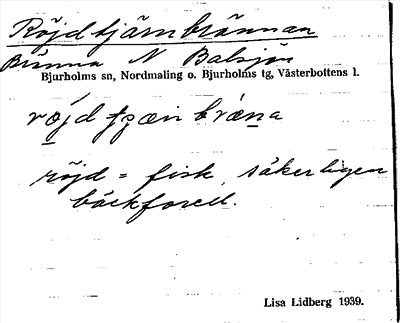 Röjdtjärnbrännan
Bränna N Balsjön
Bjurholms sn, Nordmaling o. Bjurholms tg, Västerbottens l.
röjd = fisk, säkerligen
bäckforell.
Lisa Lidberg 1939.